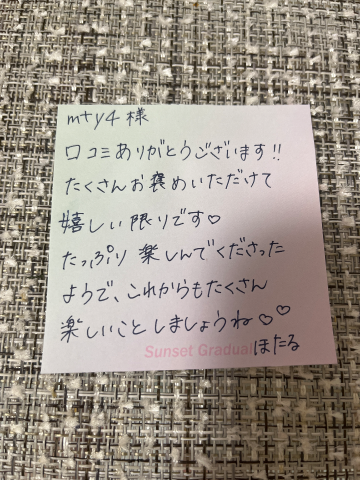 mty4 様
口コミありがとうございます!!
たくさんお褒めいただけて
嬉しい限りです♡
たっぷり楽しんでくださった
ようで、これからもたくさん
楽しいことしましょうね♡♡
Sunset Gradual ほたる